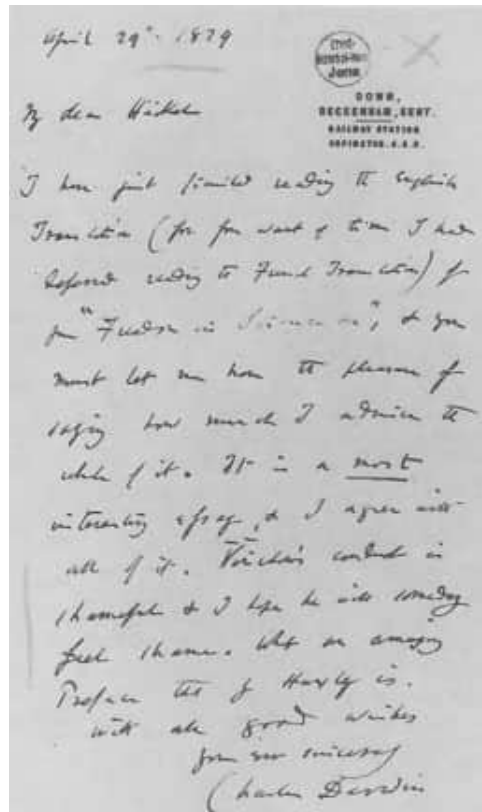 April 29th. 1879
Ernst-Haeckel-Haus
Jena
DOWN,
BECKENHAM, KENT.
RAILWAY STATION
ORPINGTON. S.E.R.
My dear Häckel
I have just finished reading the English
Translation (for from want of time I had
deferred reading the French Translation) of
your "Freedom in Science &c", & you
must let me have the pleasure of
saying how much I admire the
whole of it. It is a most
interesting essay, & I agree with
all of it. Virchow's conduct is
shameful & I hope he will someday
feel shame. What an amazing
Preface that of Huxley is.
With all good wishes
yours ever sincerely
Charles Darwin